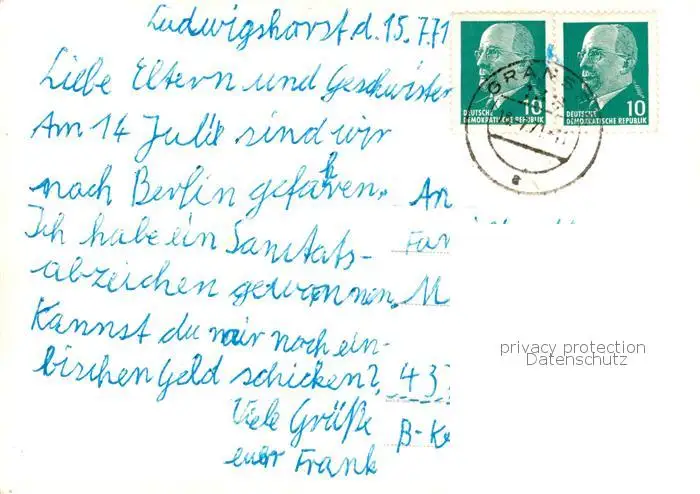 Ludwigshorst d. 15.7.71
Liebe Eltern und Geschwister
Am 14 Juli sind wir
nach Berlin gefahren.
Ich habe ein Sanitäts-
abzeichen gewonnen.
Kannst du mir noch ein-
bischen Geld schicken?
Viele Grüße
euer Frank
An
Fam
M
437
B-Kö
GRANSEE
10
DEUTSCHE
DEMOKRATISCHE REPUBLIK
10
DEUTSCHE
DEMOKRATISCHE REPUBLIK
a
privacy protection
Datenschutz